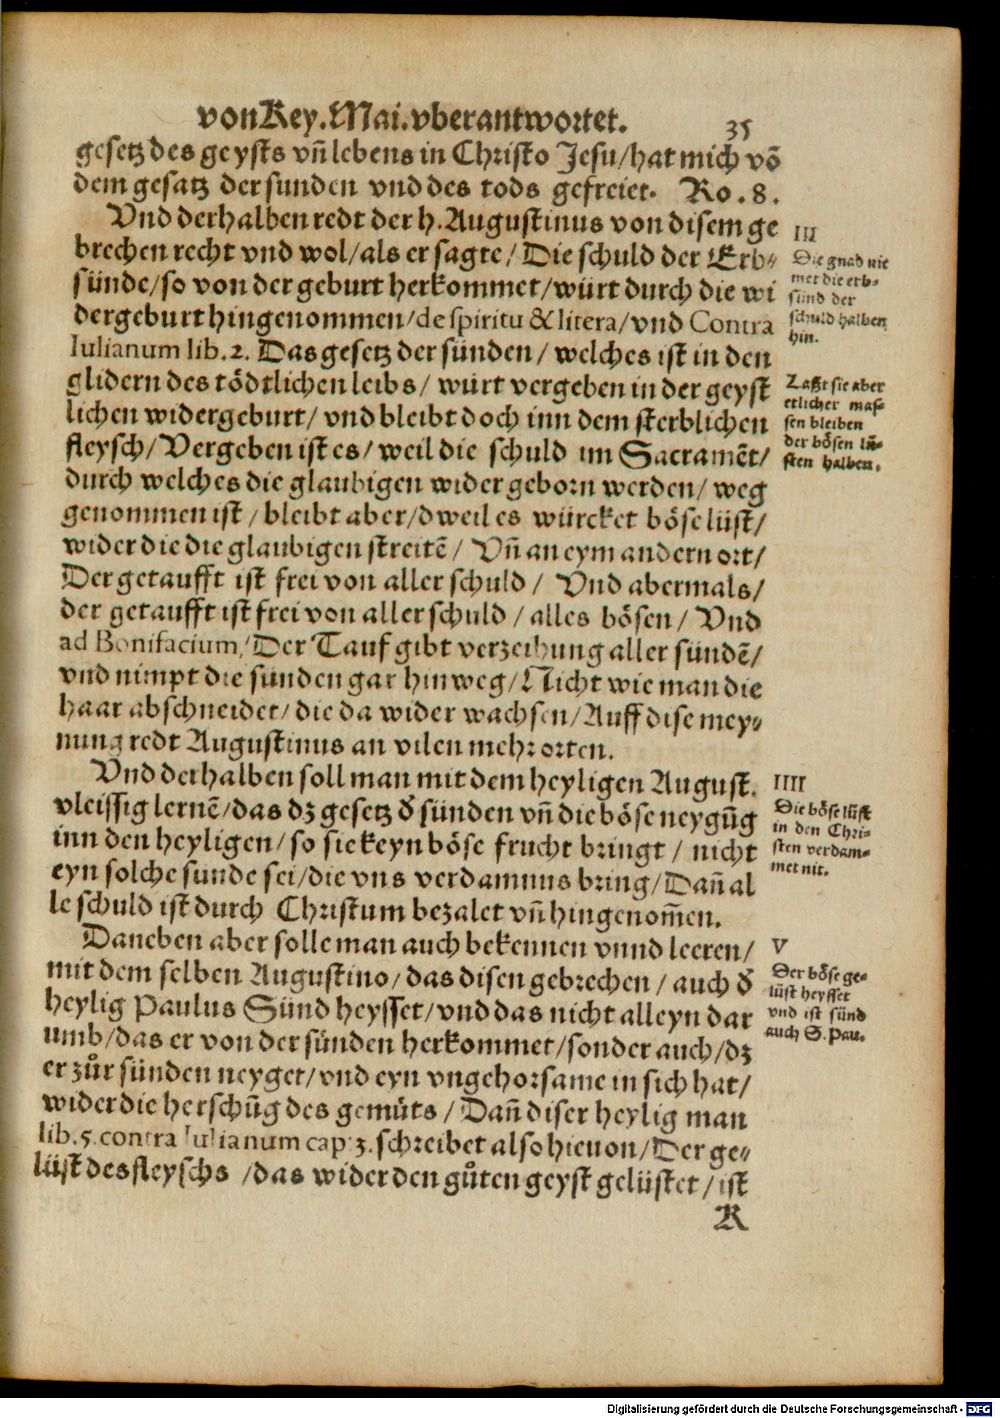 von Key. Mai. vberantwortet.
35
gesetz des geysts vñ lebens in Christo Jesu/hat mich võ
dem gesatz der sunden vnd des tods gefreiet. Ro. 8.
Vnd derhalben redt der h. Augustinus von disem ge
brechen recht vnd wol/als er sagte/Die schuld der Erb⸗
sünde/so von der geburt herkommet/würt durch die wi
dergeburt hingenommen/de spiritu & litera/vnd Contra
Iulianum lib. 2. Das gesetz der sünden/ welches ist in den
glidern des tödtlichen leibs/ würt vergeben in der geyst
lichen widergeburt/ vnd bleibt doch inn dem sterblichen
fleysch/Vergeben ist es/ weil die schuld im Sacramẽt/
durch welches die glaubigen widergeborn werden/ weg
genommen ist/ bleibt aber/dweil es würcket böse lüst/
wider die die glaubigen streitẽ/ Vñ an eym andern ort/
Der getaufft ist frei von aller schuld/ Vnd abermals/
der getaufft ist frei von aller schuld/ alles bösen/ Vnd
ad Bonifacium, Der Tauf gibt verzeihung aller sündẽ/
vnd nimpt die sünden gar hinweg/Nicht wie man die
haar abschneidet/ die da wider wachsen/Auff dise mey⸗
nung redt Augustinus an vilen mehr orten.
Vnd derhalben soll man mit dem heyligen August.
vleissig lernẽ/das dz gesetz d̕ sünden vñ die böse neygũg
inn den heyligen/ so sie keyn böse frucht bringt/ nicht
eyn solche sunde sei/die vns verdamnus bring/Dañ al
le schuld ist durch Christum bezalet vñ hingenom̃en.
Daneben aber solle man auch bekennen vnnd leeren/
mit dem selben Augustino/ das disen gebrechen/ auch d̕
heylig Paulus Sünd heysset/vnd das nicht alleyn dar
umb/das er von der sünden herkommet/sonder auch/dz
er zůr sünden neyget/vnd eyn vngehorsame in sich hat/
wider die herschũg des gemüts/ Dañ diser heylig man
lib. 5. contra Iulianum cap. 3. schreibet also hieuon/Der ge⸗
lüst des fleyschs /das wider den gůten geyst gelüstet/ist
K
III
Die gnad nie
met die erb⸗
sünd der
schuld halben
hin.
Laßt sie aber
etlicher mas⸗
sen bleiben
der bösen lü⸗
sten halben.
IIII
Die böse lüst
in den Chri⸗
sten verdam⸗
met nit.
V
Der böse ge⸗
lüst heysset
vnd ist sünd
auch S. Pau.
Digitalisierung gefördert durch die Deutsche Forschungsgemeinschaft - DFG